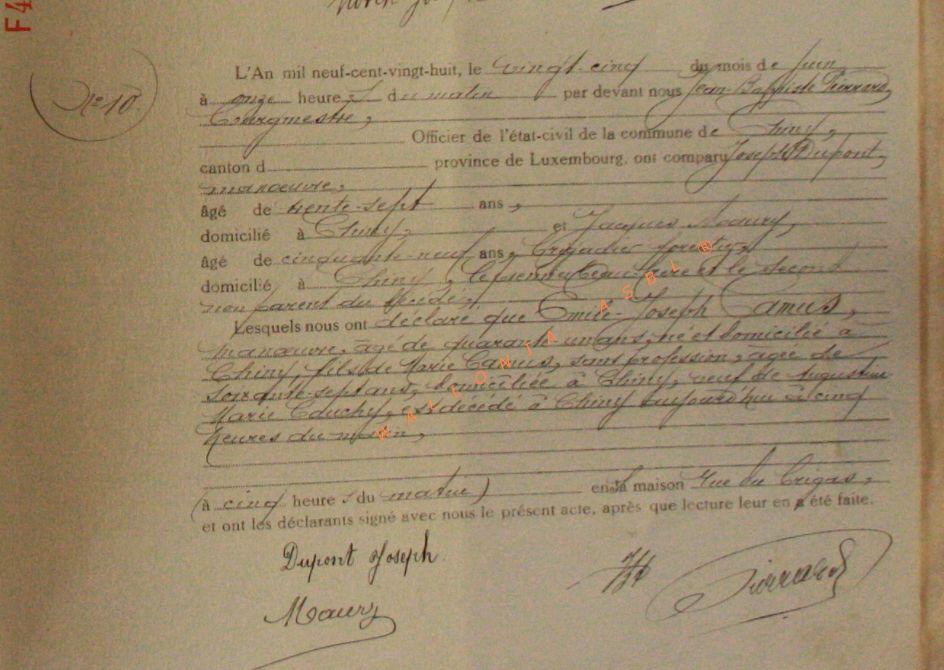 F4
N° 10.
L'An mil neuf-cent-vingt-huit, le vingt-cinq du mois de juin
à onze heures du matin par devant nous Jean-Baptiste Pierrard,
Bourgmestre,
Officier de l'état-civil de la commune de Chiny,
canton d province de Luxembourg, ont comparu Joseph Dupont,
manœuvre,
âgé de trente-sept ans,
domicilié à Chiny, et Jacques Maury,
âgé de cinquante-neuf ans, brigadier forestier,
domicilié à Chiny, le premier beau-frère et le second
non parent du décédé,
Lesquels nous ont déclaré que Emile-Joseph Camus,
manœuvre, âgé de quarante un ans, né et domicilié à
Chiny, fils de Marie Camus, sans profession, âgée de
soixante-sept ans, domiciliée à Chiny, veuf de Augustine
Marie, est décédé à Chiny aujourd'hui à cinq
heures du matin,
(à cinq heures du matin) en sa maison Rue du
et ont les déclarants signé avec nous le présent acte, après que lecture leur en a été faite.
Dupont Joseph.
Pierrard
Maury
WALLONIA ASBL ©